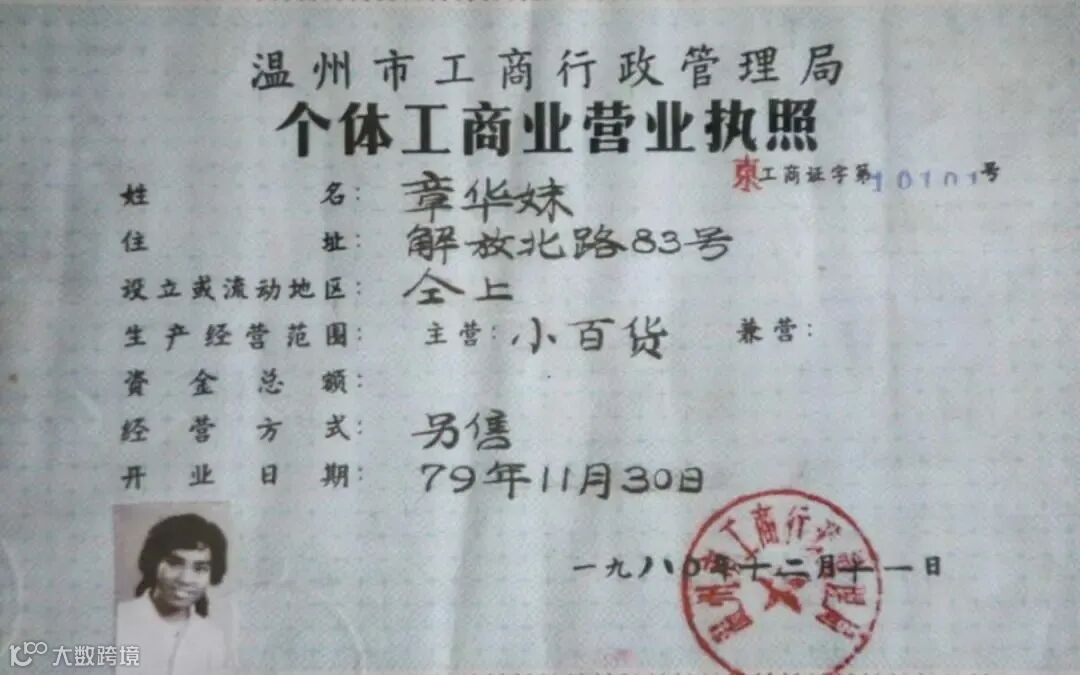 温州市工商行政管理局
个体工商业营业执照
東工商证字第10101号
姓名：章华妹
住址：解放北路83号
设立或流动地区：仝上
生产经营范围：主营：小百货 兼营：
资金总额：
经营方式：另售
开业日期：79年11月30日
一九八〇年十二月十一日
温州市工商行政管理局
大数跨境